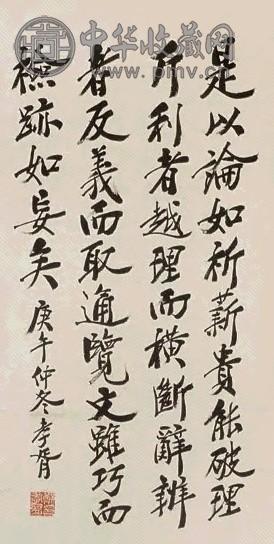 中华收藏网
www.pmv.cn
是以論如析薪貴能破理
斤利者越理而橫斷辭辨
者反義而取通覽文雖巧而
檢跡如妄矣 庚午仲冬孝胥